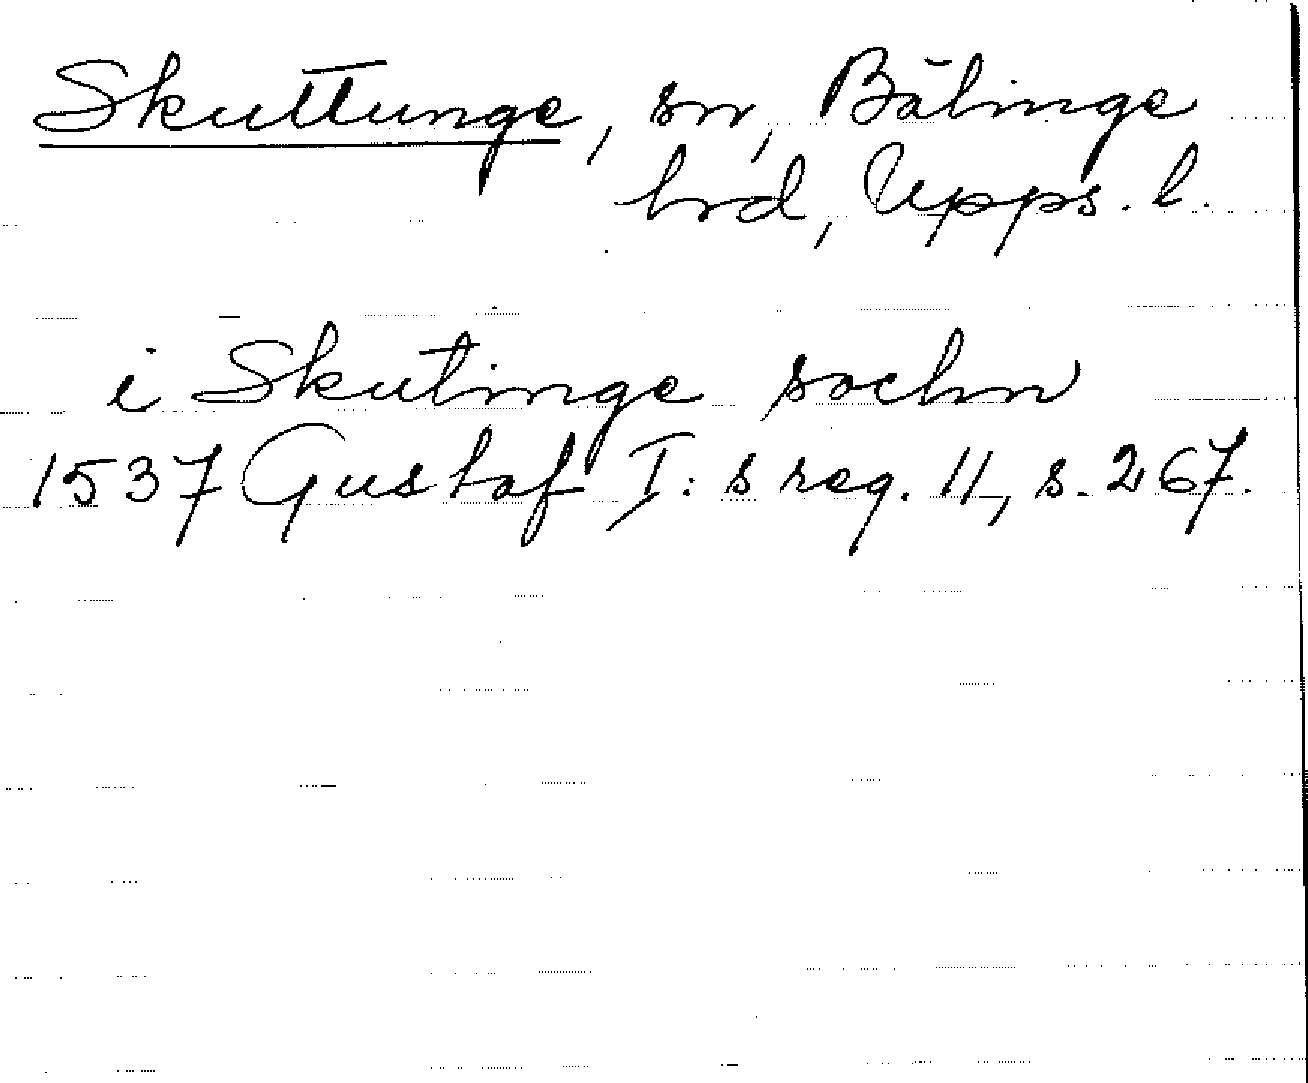 Skuttunge, sn, Bälinge
hrd, Upps. l.
i Skutinge sochn
1537 Gustaf I:s reg. 11, s. 267.